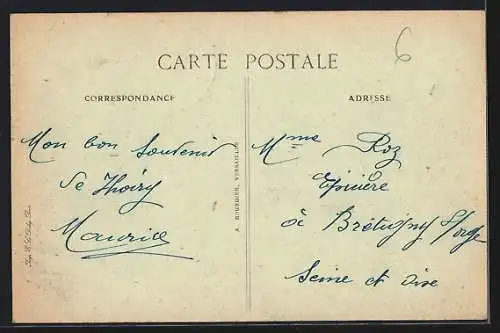 6
CARTE POSTALE
CORRESPONDANCE
ADRESSE
Mon bon souvenir
de Thoiry
Maurice
A. BOURDIER, VERSAILLES
Mme Roz
Epicière
à Brétigny s/orge
Seine et Oise